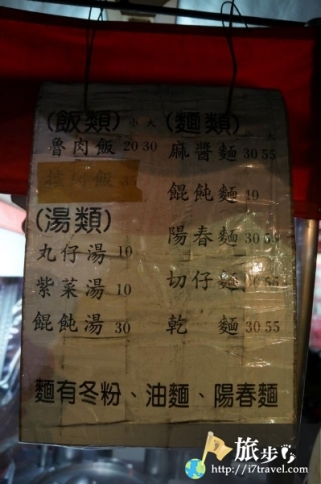 (飯類) 小 大
魯肉飯 20 30
(湯類)
丸仔湯 10
紫菜湯 10
餛飩湯 30
(麵類) 小 大
麻醬麵 30 55
餛飩麵 40
陽春麵 30 55
切仔麵 30 55
乾麵 30 55
麵有冬粉、油麵、陽春麵
旅步
http://i7travel.com/